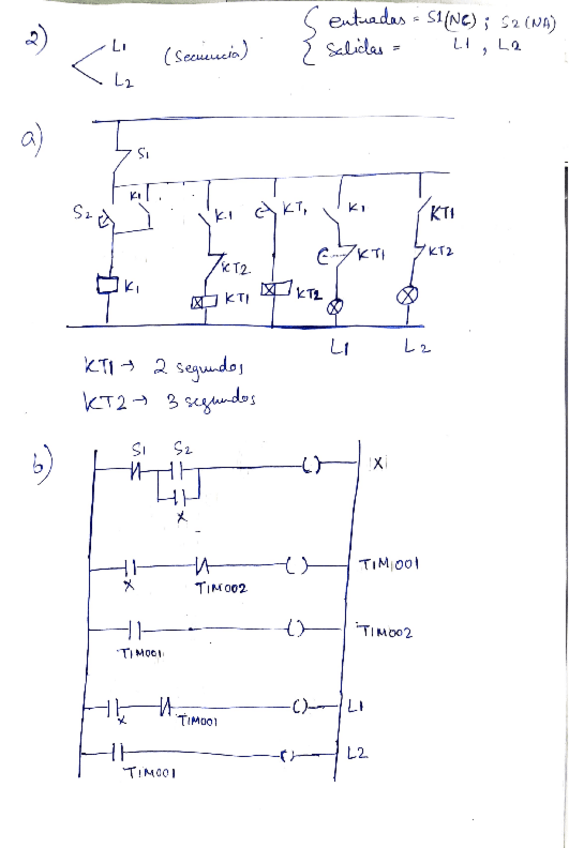 2) L1 (Secuencia) { entradas = S1(NC) ; S2(NA)
L2 { Salidas = L1 , L2
a)
S1
S2 K1 K1 KT1 K1 KT1
KT2 KT1 KT2
K1 KT1 KT2
L1 L2
KT1 → 2 segundos
KT2 → 3 segundos
b)
S1 S2 ( ) X
X
X TIM002 ( ) TIM001
TIM001 ( ) TIM002
X TIM001 ( ) L1
TIM001 ( ) L2